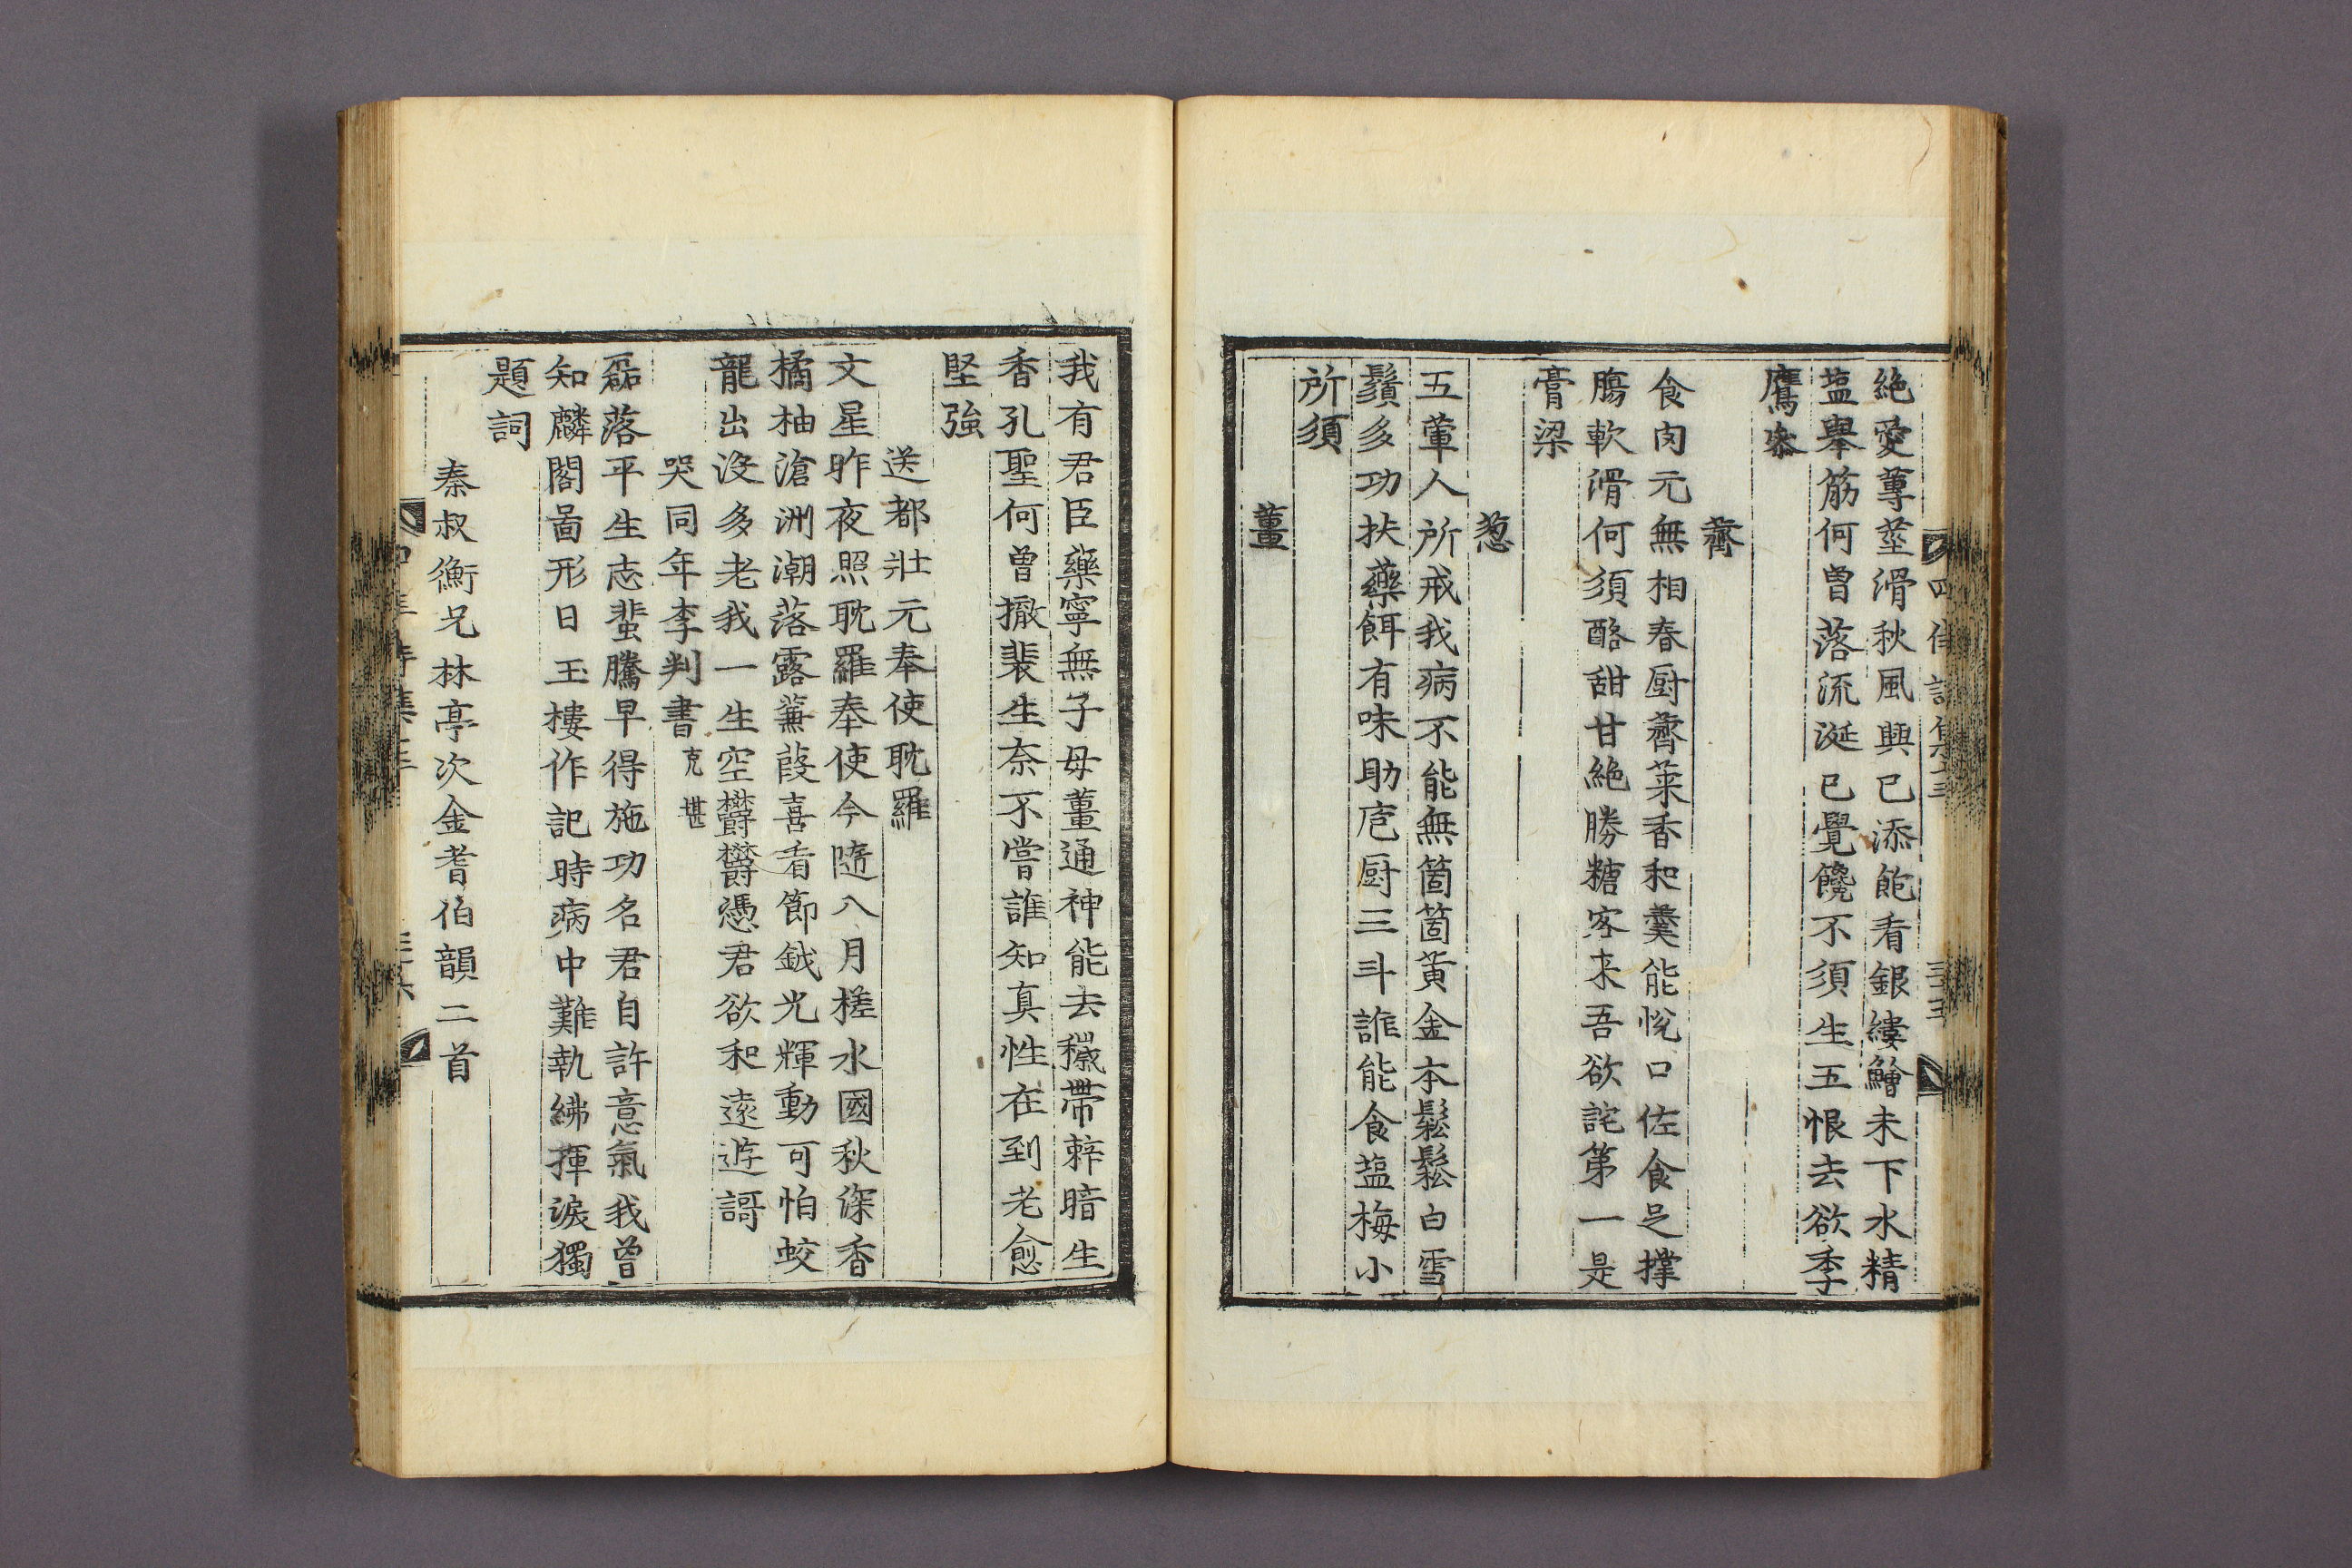 絶愛蓴莖滑秋風興已添飽看銀縷鱠未下水精
塩舉筋何曾落流涎已覺饞不須生五恨去欲季
鷹叅
薺
食肉元無相春厨薺菜香和羹能悅口佐食足撑
膓軟滑何須酪甜甘絶勝糖客来吾欲詫第一是
膏梁
葱
五葷人所戒我病不能無箇箇黃金本鬆鬆白雪
鬚多功扶藥餌有味助庖厨三斗誰能食塩梅小
所須
薑
我有君臣藥寧無子母薑通神能去穢帶辢暗生
香孔聖何曾撤裴生奈不嘗誰知真性在到老愈
堅強
送都壯元奉使耽羅
文星昨夜照耽羅奉使今隨八月槎水國秋深香
橘柚滄洲潮落露蒹葭喜看節鉞光輝動可怕蛟
龍出没多老我一生空欝欝憑君欲和遠遊謌
哭同年李判書克堪
磊落平生志蜚騰早得施功名君自許意氣我曾
知麟閣啚形日玉樓作記時病中難執紼揮淚獨
題詞
秦叔衡兄林亭次金耆伯韻二首